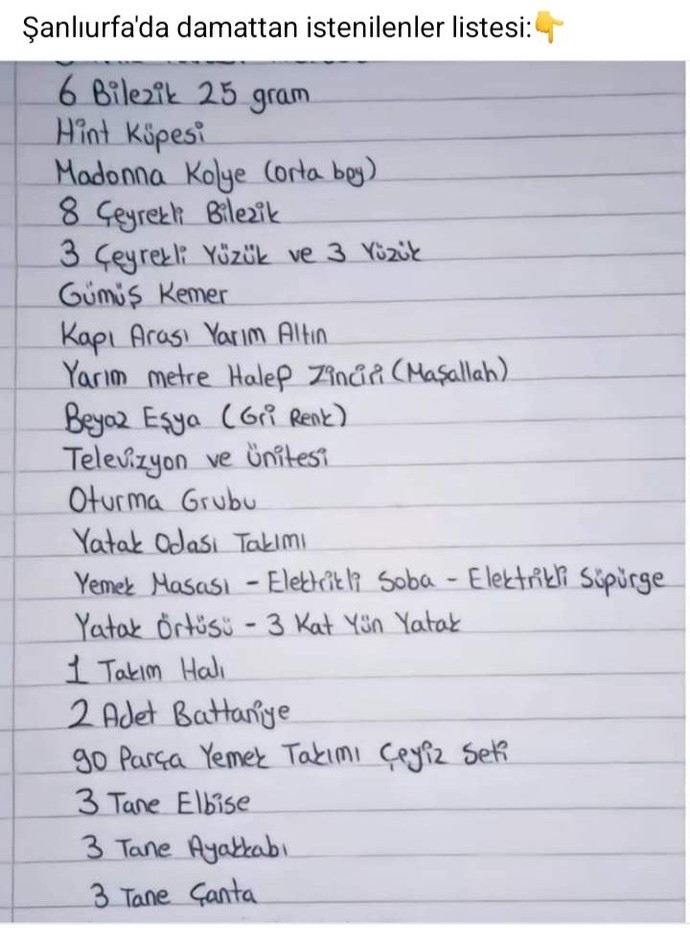 Şanlıurfa'da damattan istenilenler listesi:👇
6 Bilezik 25 gram
Hint Küpesi
Madonna Kolye (orta boy)
8 Çeyrekli Bilezik
3 Çeyrekli Yüzük ve 3 Yüzük
Gümüş Kemer
Kapı Arası Yarım Altın
Yarım metre Halep Zinciri (Maşallah)
Beyaz Eşya (Gri Renk)
Televizyon ve Ünitesi
Oturma Grubu
Yatak Odası Takımı
Yemek Masası - Elektrikli Soba - Elektrikli Süpürge
Yatak Örtüsü - 3 Kat Yün Yatak
1 Takım Halı
2 Adet Battaniye
90 Parça Yemek Takımı Çeyiz Seti
3 Tane Elbise
3 Tane Ayakkabı
3 Tane Çanta